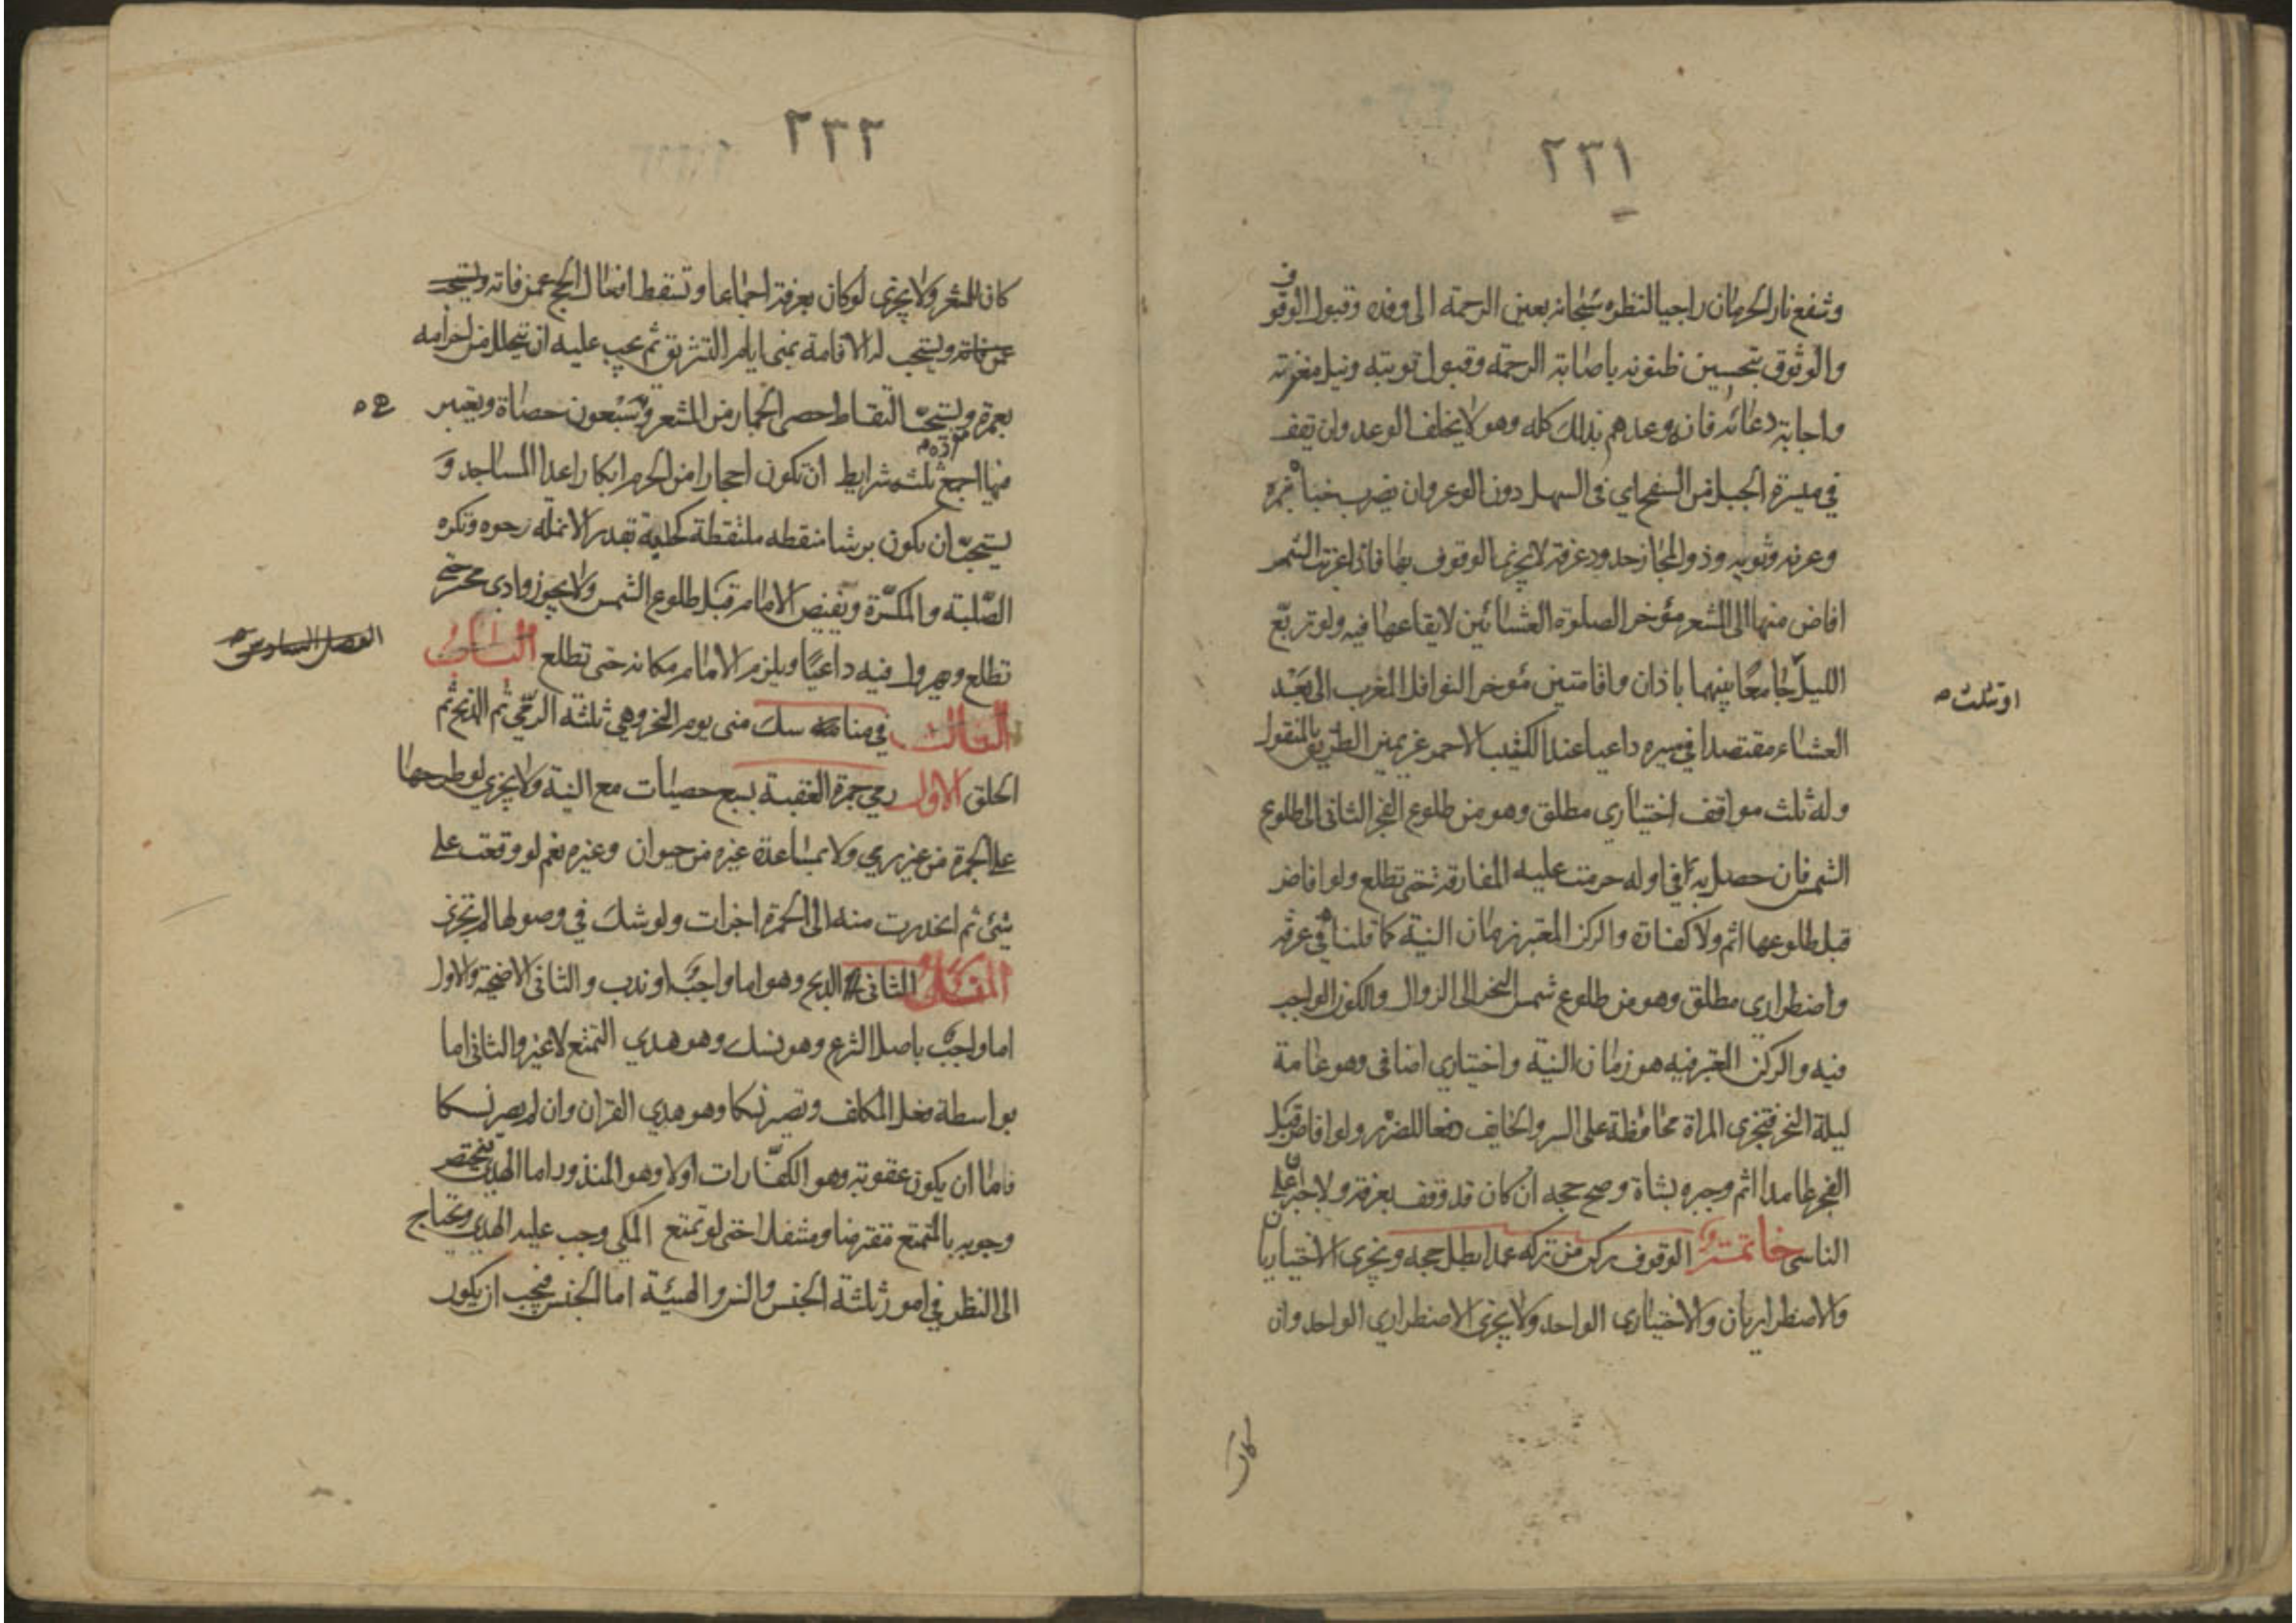 ٢٣١
وشفع نار الحرمان راجيا لنظره سبحانه بعين الرحمة الى وفده وقبول الوقوف
والوثوق بتحسين ظنونه باصابة الرحمة وقبول توبته ونيل مغفرته
واجابة دعائه فانه وعدهم بذلك كله وهو لا يخلف الوعد وان يقف
في ميسرة الجبل من السفح اي في السهل دون الوعر وان يضرب خباه بنمرة
وعرنه وثويه وذو المجاز حدود عرفة لا يجزي الوقوف بها فاذا غربت الشمس
افاض منها الى المشعر مؤخر الصلوة العشائين لايقاعها فيه ولو تربع
الليل جامعا بينهما باذان واقامتين مؤخر النوافل المغرب الى بعد
او ثلث
العشاء مقتصدا في سيره داعيا عند الكثيب الاحمر عن يمين الطريق بالمنقول
وله ثلث مواقف اختياري مطلق وهو من طلوع الفجر الثاني الى طلوع
الشمس فان حصل به في اوله حرمت عليه المفارقة حتى تطلع ولو افاض
قبل طلوعها اثم ولا كفارة والركن المعتبر زمان النية كما قلناه في عرفة
واضطراري مطلق وهو من طلوع شمس النحر الى الزوال والكون الواجب
فيه والركن المعتبر فيه هو زمان النية واختياري اضافي وهو عامة
ليلة النحر فتجزي المراة محافظة على الستر والخايف دفعا للضرر ولو افاض قبل
الفجر عامدا اثم وجبره بشاة وصح حجه ان كان قد وقف بعرفة ولا جبر على
الناسي خاتمة الوقوف ركن من تركه عمدا بطل حجه ويجزي الاختياريان
والاضطراريان والاختياري الواحد ولا يجزي الاضطراري الواحد وان
كان
٢٣٢
كان المشعر ولا يجزي لو كان بعرفة اجماعا وتسقط افعال الحج عمن فاته ويستحب
عمن فاته ويستحب له الاقامة بمنى ايام التشريق ثم يجب عليه ان يتحلل من احرامه
بعمرة ويستحب التقاط حصى الجمار من المشعر وهي سبعون حصاة ويعتبر
فيها اجمع ثلثة شرايط ان تكون احجارا من الحرم ابكارا عدا المساجد و
يستحب ان يكون برشا منقطه ملتقطة كحلية بقدر الانملة رخوه وتكره
الصلبة والمكسرة ويفيض الامام قبل طلوع الشمس ولا يجوز وادي محسر حتى
تطلع ويهرول فيه داعيا ويلزم الامام مكانه حتى تطلع الباب
الفصل السادس
الثالث في مناسك منى يوم النحر وهي ثلثة الرمي ثم الذبح ثم
الحلق الاول رمي جمرة العقبة بسبع حصيات مع النية ولا يجزي لو طرحها
على الجمرة من غير رمي ولا بمساعدة غيره من حيوان وغيره نعم لو وقعت على
شئ ثم انحدرت منه الى الجمرة اجزات ولو شك في وصولها لم تجز
الثاني الذبح وهو اما واجب او ندب والثاني الاضحية والاول
اما واجب باصل الشرع وهو نسك وهو هدي التمتع لا غير والثاني اما
بواسطة فعل المكلف وتصير نسكا وهو هدي القران وان لم يصر نسكا
فاما ان يكون عقوبة وهو الكفارات اولا وهو المنذور اما الهدي فيختص
وجوبه بالتمتع مفترضا ومتنفلا حتى لو تمتع المكي وجب عليه الهدي ويحتاج
الى النظر في امور ثلثة الجنس والسن والهيئة اما الجنس فيجب ان يكون